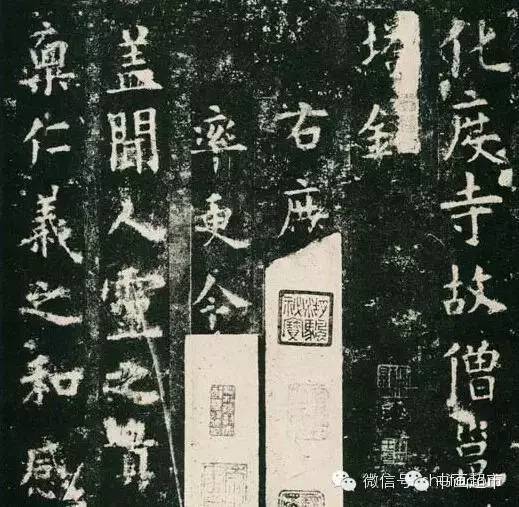 化度寺故僧邕
塔銘
右庶
率更令
盖聞人靈之貴
稟仁義之和感
微信号
书画超市